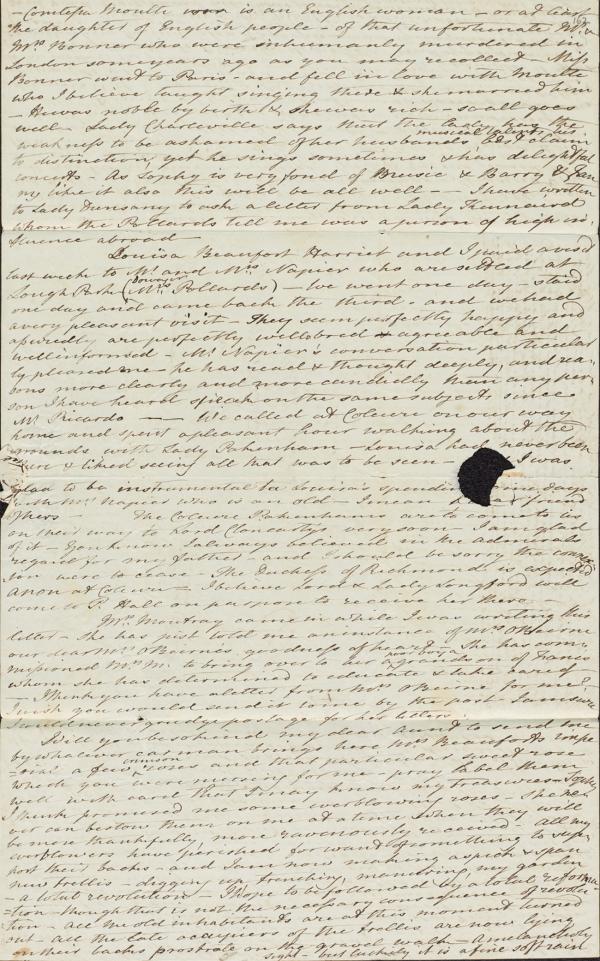 - Comtesse Moutte is an English woman - or at least
the daughter of English people - of that unfortunate Mr &
Mrs Bonner who were inhumanly murdered in
London some years ago as you may recollect - Miss
Bonner went to Paris - and fell in love with Moutte
who I believe taught singing there & she married him
- He was noble by birth & she was rich - so all goes
well - Lady Charleville says that the lady has the
weakness to be ashamed of her husbands best claim
musical talents, his
to distinction, yet he sings sometimes & has delightful
concerts - As Sophy is very fond of Music & Barry & Fan
ny like it also this will be all well - - I have written
to Lady Dunsany to ask a letter from Lady Kinnaird
whom the Pollards tell me was a person of high in
fluence abroad
Louisa Beaufort Harriet and I paid a visit
last week to Mr and Mrs Napier who are settled at
Lough Park (Dowager Mrs Pollards) - We went one day - staid
one day and came back the third - and we had
a very pleasant visit - They seem perfectly happy and
assuredly are perfectly wellbred & agreeable and
wellinformed - Mr Napier's conversation particular
ly pleased me - he has read & thought deeply, and rea-
sons more clearly and more candidly than any per-
son I have heard speak on the same subjects since
Mr Ricardo - We called at Coolure on our way
home and spent a pleasant hour walking about the
grounds with Lady Pakenham - Louisa had never been
there & liked seeing all that was to be seen - I was
glad to be instrumental in Louisa's spending some days
with Mrs Napier who is an old - I mean a dear friend
of hers - The Coolure Pakenhams are to come to us
on their way to Lord Clancartys very soon - I am glad
of it - You know I always believed in the admirals
regard for my father - and I should be sorry the connec
tion were to cease - The Duchess of Richmond is expected
anon at Coolure - I believe Lord & Lady Longford will
come to P. Hall on purpose to receive her there. -
Mrs Moutray came in while I was writing this
letter - She has just told me an instance of Mrs OBeirne
our dear Mrs OBeirne's goodness of heart. She has com
missioned Mrs M. to bring over to her a grandson of Francis
whom she has determined to educate & take care of -
- I think you have a letter from Mrs OBeirne for me?
I wish you would send it to me by the post. I am sure
I could never grudge postage for her letters.
Will you be so kind my dear Aunt to send me
by whatever carman brings here Mrs Beauforts impe
=rial a few crimson roses and that particular sweet rose
which you were nursing for me - pray label them
well with care that I may know my treasures - Sophy
I think promised me some overblowing roses - She ne
ver can bestow them on me at a time when they will
be more thankfully, more ravenously received - All my
overblowers have perished for want of something to sup-
port their backs - and I am now making a spick & span
new trellis - digging up, trenching, manuring, my garden
- a total revolution - I hope to be followed by a total reforma
=tion - though that is not the necessary consequence of revolu
tion - All the old inhabitants are at this moment turned
out - all the late occupiers of the trellis are now lying
on their backs prostrate on the gravel walk - A melancholy
sight - but luckily it is a fine soft rain